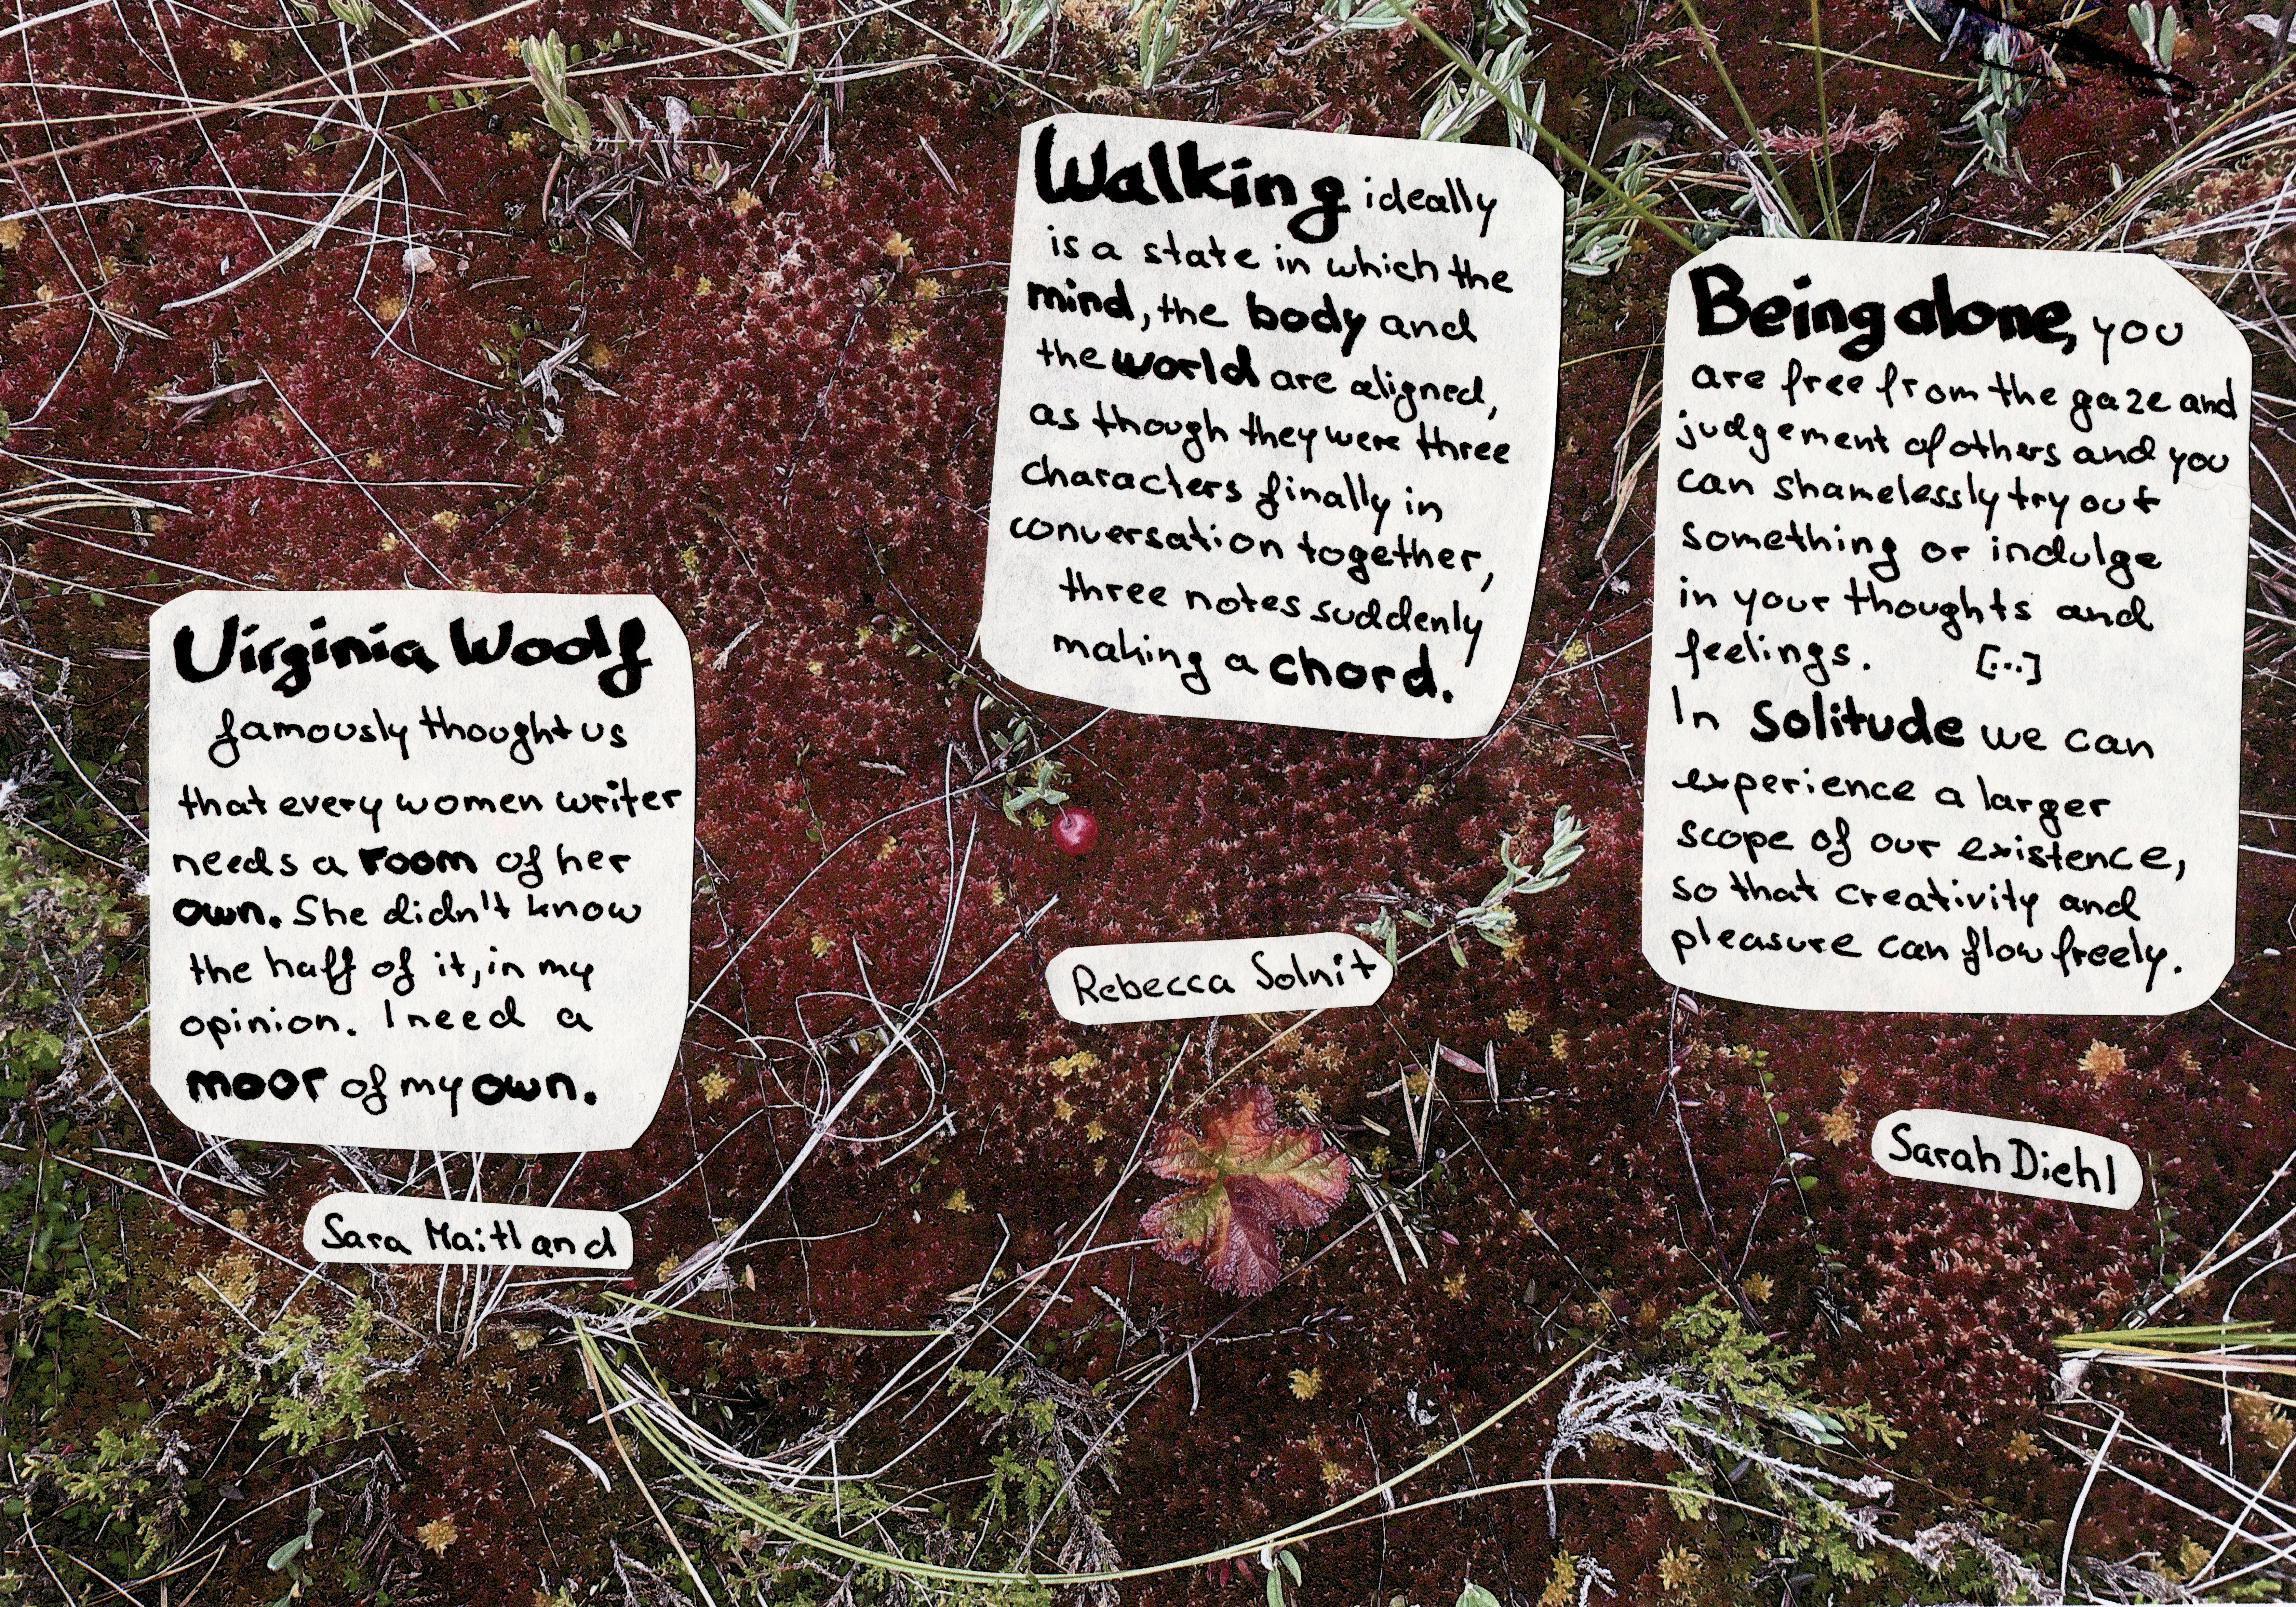 Virginia Woolf
famously thought us
that every women writer
needs a room of her
own. She didn't know
the half of it, in my
opinion. I need a
moor of my own.
Sara Maitland
Walking ideally
is a state in which the
mind, the body and
the world are aligned,
as though they were three
characters finally in
conversation together,
three notes suddenly
making a chord.
Rebecca Solnit
Being alone, you
are free from the gaze and
judgement of others and you
can shamelessly try out
something or indulge
in your thoughts and
feelings. [...]
In solitude we can
experience a larger
scope of our existence,
so that creativity and
pleasure can flow freely.
Sarah Diehl